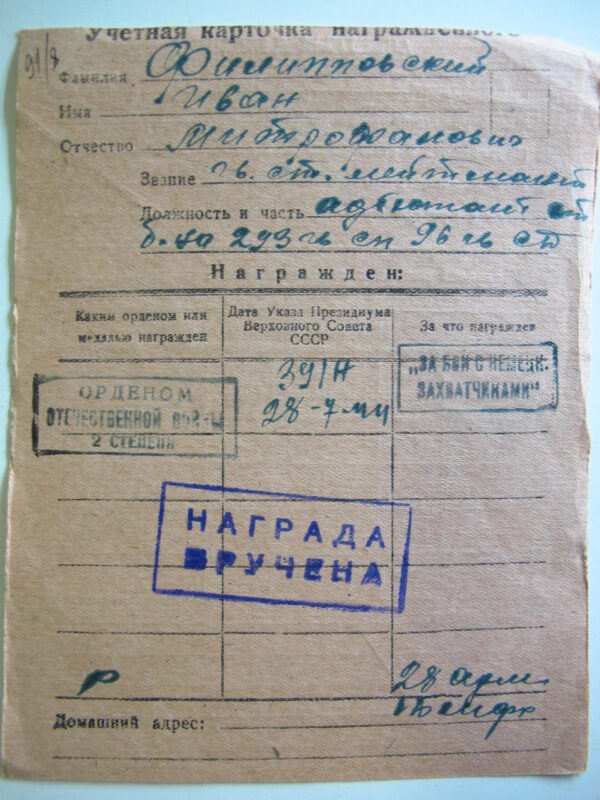 91/8
Учетная карточка награжденного
Фамилия Филипповский
Имя Иван
Отчество Митрофанович
Звание гв. ст. лейтенант
Должность и часть адъютант ст
б-на 293 гв сп 96 гв сд
Награжден:
Каким орденом или медалью награжден
Дата Указа Президиума Верховного Совета СССР
За что награжден
ОРДЕНОМ
ОТЕЧЕСТВЕННОЙ ВОЙНЫ
2 СТЕПЕНИ
39/н
28-7-44
"ЗА БОИ С НЕМЕЦК.
ЗАХВАТЧИКАМИ"
НАГРАДА
ВРУЧЕНА
Р
28 арм
Домашний адрес: